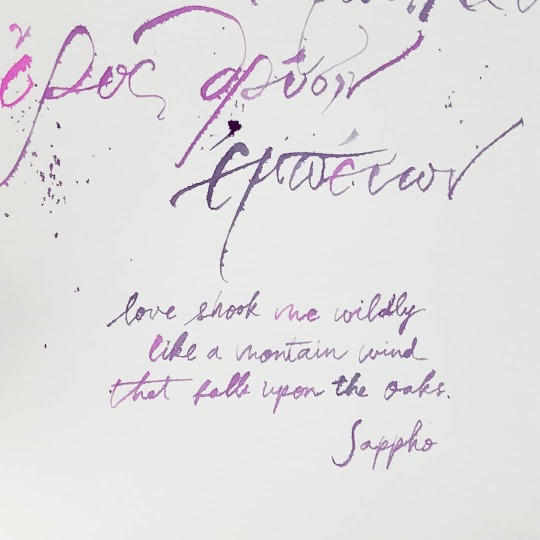 ὄρος δρύσιν
ἐμπέτων
love shook me wildly
like a montain wind
that falls upon the oaks.
Sappho